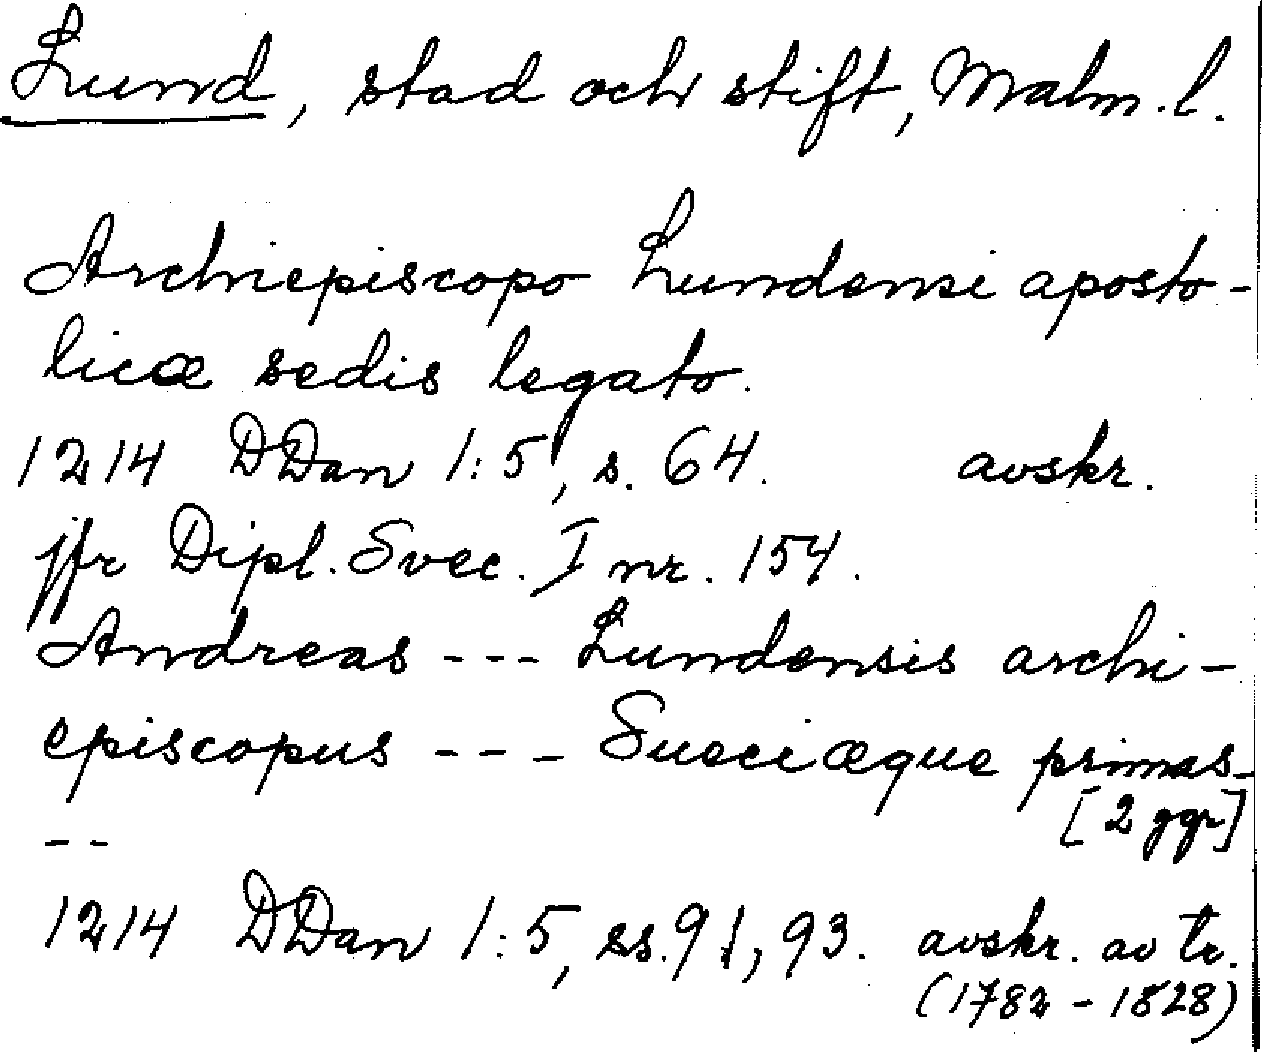 Lund, stad och stift, Malm. l.
Archiepiscopo Lundensi aposto-
licæ sedis legato.
1214 DDan 1:5, s. 64. avskr.
jfr Dipl. Svec. I nr. 154.
Andreas --- Lundensis archi-
episcopus --- Sueciæque primas-
[2 ggr]
--
1214 DDan 1:5, ss. 91, 93. avskr. av tr.
(1782 - 1828)